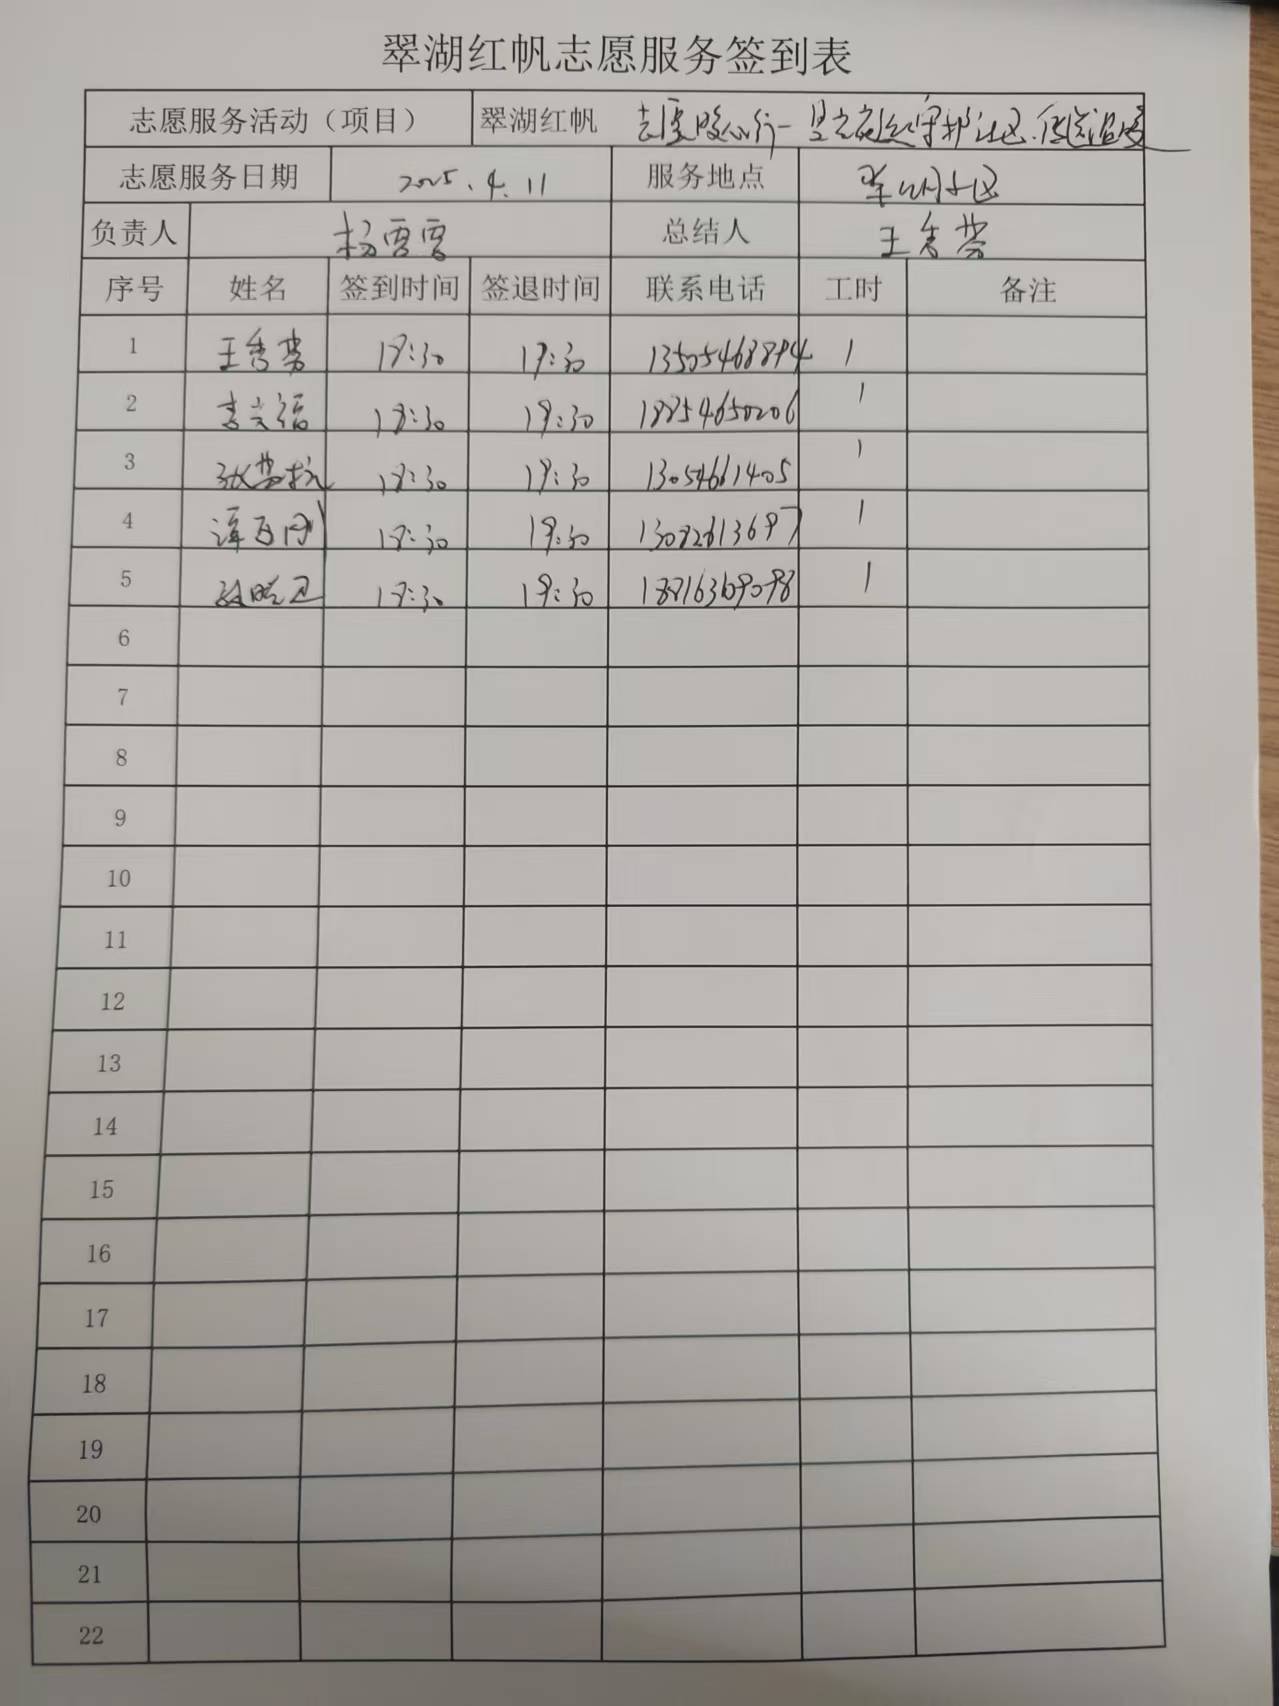 翠湖红帆志愿服务签到表
志愿服务活动（项目） 翠湖红帆 志愿暖心行一 守护社区.传送温度
志愿服务日期 2025.4.11 服务地点 翠湖社区
负责人 杨雪雪 总结人 王秀芳
序号 姓名 签到时间 签退时间 联系电话 工时 备注
1 王秀芳 18:30 19:30 13505468894 1
2 18:30 19:30 18254650206 1
3 18:30 19:30 13054661405 1
4 18:30 19:30 1
5 18:30 19:30 1
6
7
8
9
10
11
12
13
14
15
16
17
18
19
20
21
22